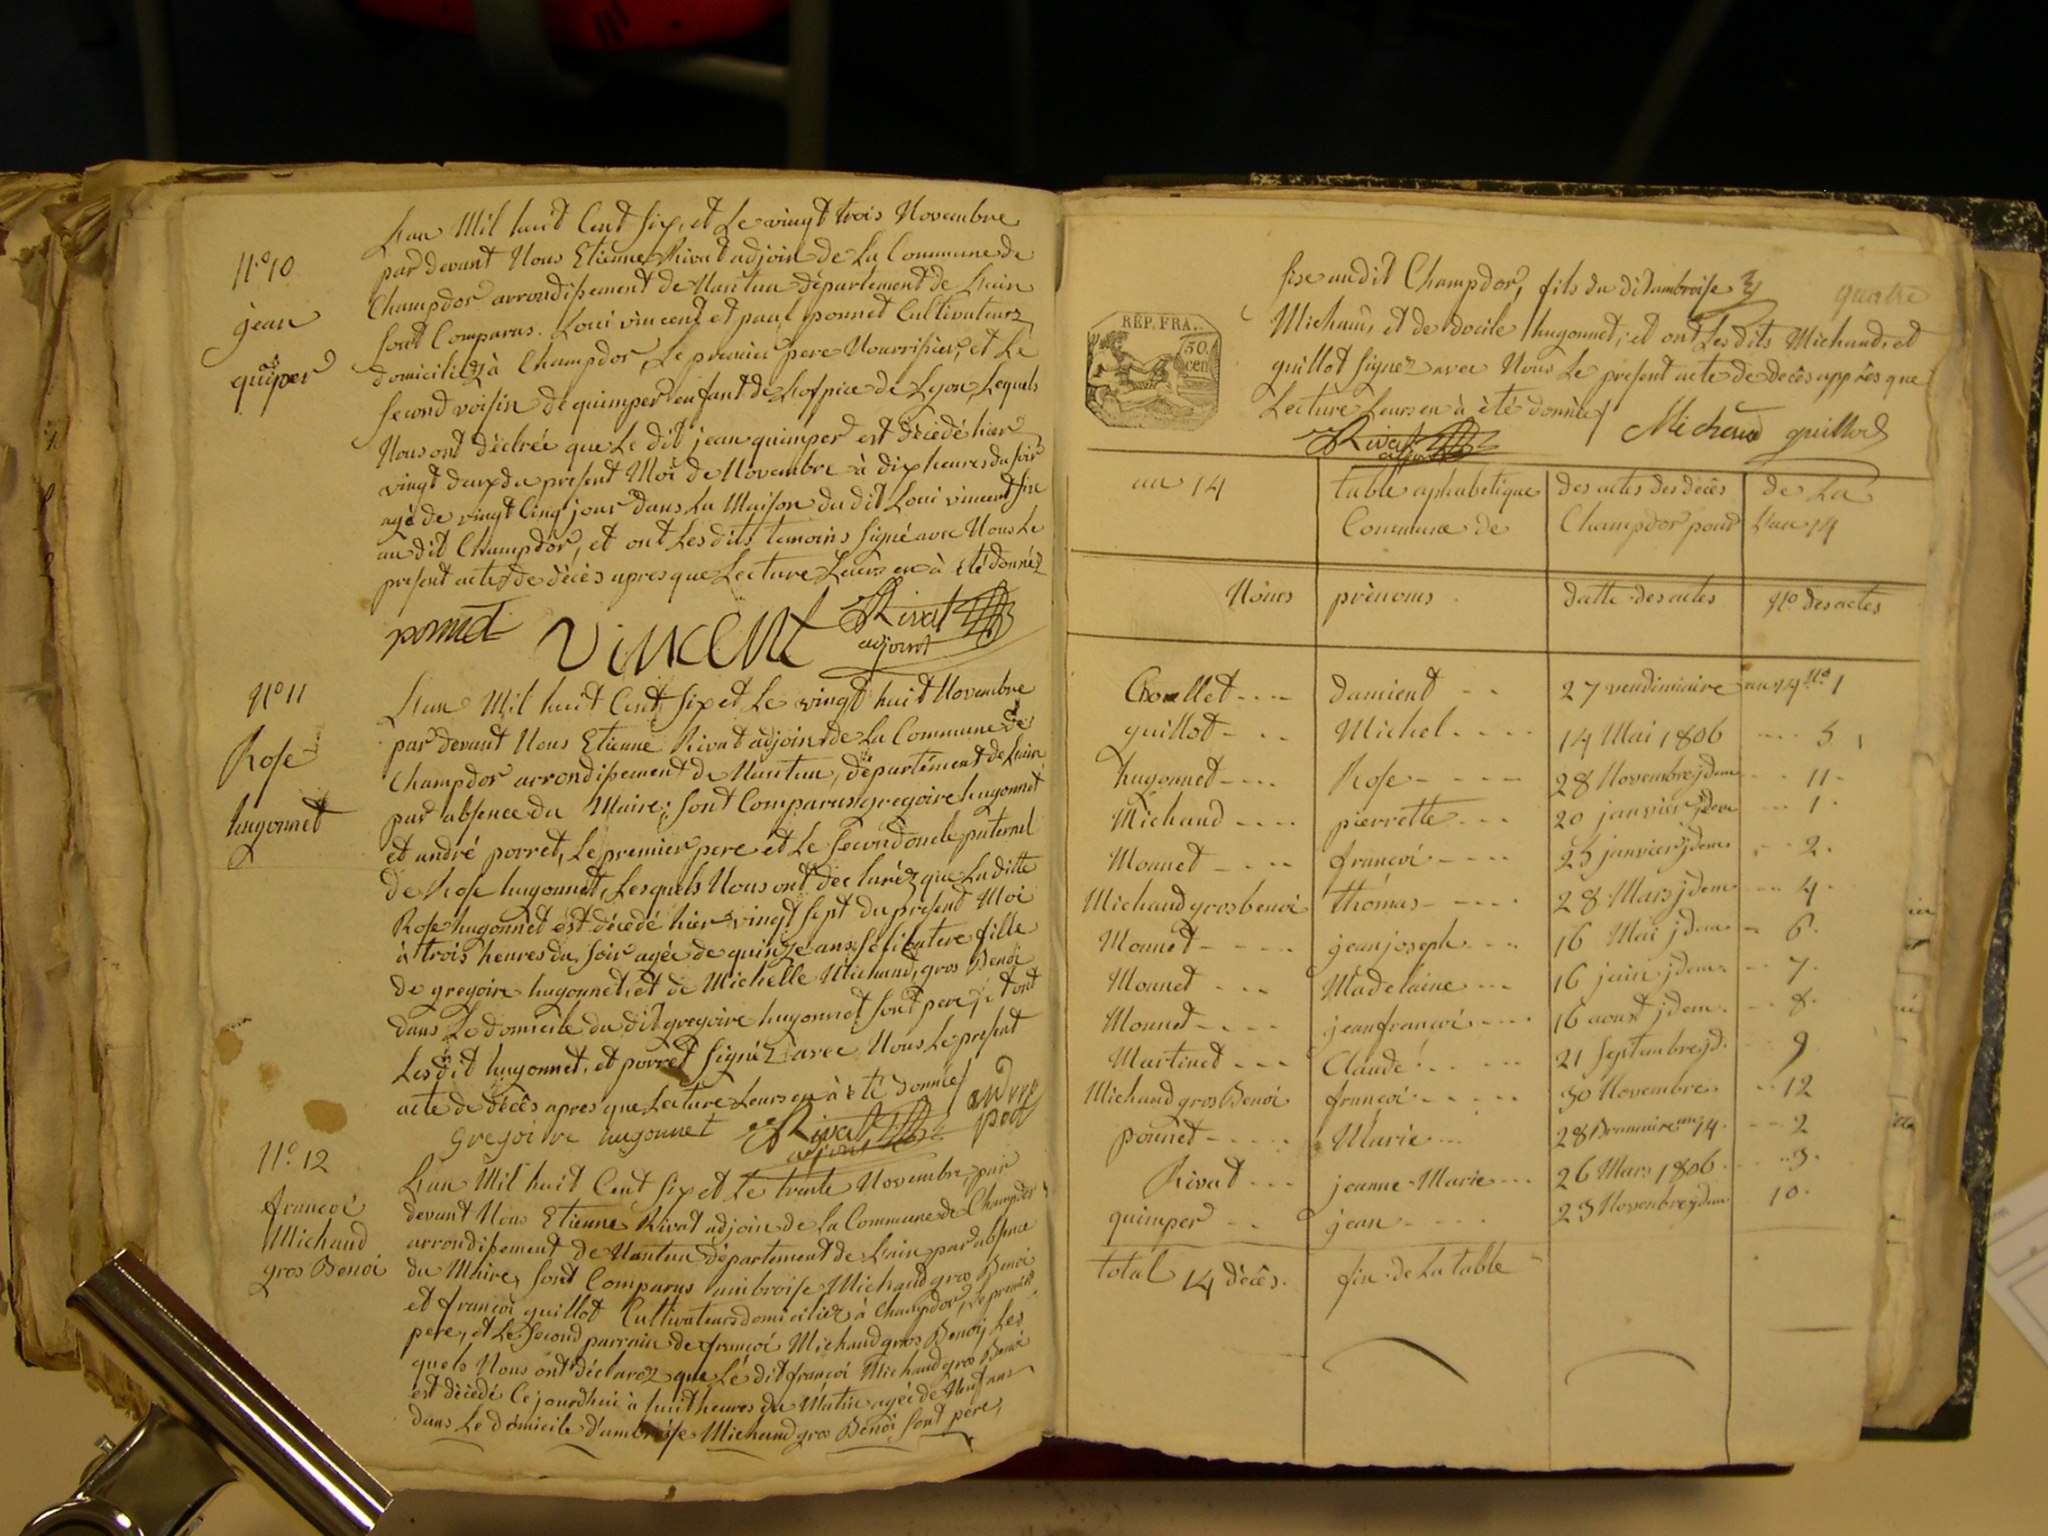 N.º 10
jean
quimper
L'an Mil huit Cent six, et Le vingt trois Novembre
par devant Nous Etienne Rivat adjoin de La Commune de
Champdor arrondissement de Nantua département de L'ain
sont Comparus. Loui vincent et paul ponnet Cultivateurs
domiciliez à Champdor, Le premier pere Nourrisier, et Le
second voisin de quimper enfant de L'ospice de Lyon, Lequels
Nous ont dèclrée que Le dit jean quimper est dècedé hier
vingt deux du present Moi de Novembre à dix heures du soir
agé de vingt Cinq jour dans La Maison du dit Loui vincent sise
au dit Champdor, et ont Les dits temoins signé avec Nous Le
present acte de dècès apres que Lecture Leurs en à été donnéz
ponnet vincent Rivat
adjoint
N.º 11
Rose
hugonnet
L'an Mil huit Cent six et Le vingt huit Novembre
par devant Nous Etienne Rivat adjoin de La Commune de
Champdor arrondissement de Nantua, département de L'ain
par absence du Maire; sont Comparus gregoire hugonnet
et andré porret, Le premier pere et Le second oncle paternel
de Rose hugonnet, Lesquels Nous ont declaréz que La ditte
Rose hugonnet est décedé hier vingt sept du present Moi
à trois heures du soir agée de quinze ans Célibatere fille
de gregoire hugonnet, et de Michelle Michaud, gros Benoi
dans Le domicile du dit gregoire hugonnet sont pere, et ont
Les dit hugonnet, et porret signéz avec Nous Le present
acte de décès apres que Lecture Leurs en à été donnée
andre
gregoire hugonnet Rivat
adjoint
N.º 12
francoi
Michaud
gros Benoi
L'an Mil huit Cent six et Le trente Novembre, par
devant Nous Etienne Rivat adjoin de La Commune de Champdor
arrondissement de Nantua département de L'ain par absence
du Maire, sont Comparus ambroise Michaud gros Benoi
et francoi guillot Cultivateurs domiciliez à Champdor, Le premier
pere, et Le second parrain de françoi Michaud gros Benoi, Les
quels Nous ont déclarez que Le dit françoi Michaud gros Benoi
est dècedé Cejourdhui à huit heures du Matin agée de Neuf ans
dans Le domicile d'ambroise Michaud gros Benoi sont pere,
quatre
sise au dit Champdor, fils du dit ambroise
Michaud et de docile hugonnet; et ont Les dits Michaud, et
guillot signez avec Nous Le present acte de decès apprès que
Lecture Leurs en à été donnée
RÉP. FRA.
50.
cen.
Rivat Michaud guillot
adjoint
an 14 table aphabetique des actes des dècès de La
Commune de Champdor pour L'an 14
Noms prènoms datte des actes Nº des actes
Chovellet damient 27 vendimiaire an 14 nº 1
guillot Michel 14 Mai 1806 5
hugonnet Rose 28 Novembre jdem 11
Michaud pierrette 20 janvier jdem 1
Monnet francoi 25 janvier jdem 2
Michaud gros benoi thomas 28 Mars jdem 4
Monnet jean joseph 16 Mai jdem 6
Monnet Madelaine 16 juin jdem 7
Monnet jean francoi 16 aoust jdem 8
Martinet Claude 21 Septembre jd. 9
Michaud gros Benoi francoi 30 Novembre 12
ponnet Marie 28 Brumaire an 14 2
Rivat jeanne Marie 26 Mars 1806 3
quimper jean 23 Novembre jdem 10
total 14 dècès. fin de La table